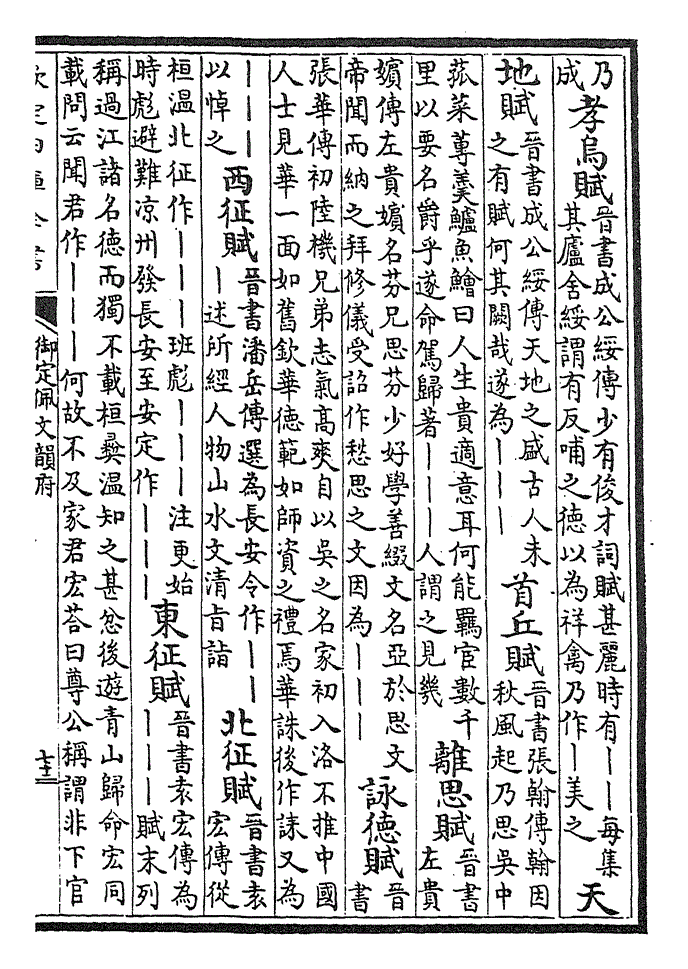 乃
成
孝烏賦
晉書成公綏傳少有俊才詞賦甚麗時有丨丨每集
其廬舍綏謂有反哺之德以為祥禽乃作丨美之
天
地賦
晉書成公綏傳天地之盛古人未
之有賦何其闕哉遂為丨丨丨
首丘賦
晉書張翰傳翰因
秋風起乃思吳中
菰菜蓴羮鱸魚鱠曰人生貴適意耳何能羈官數千
里以要名爵乎遂命駕歸著丨丨丨人謂之見幾
離思賦
晉書
左貴
嬪傳左貴嬪名芬兄思芬少好學善綴文名亞於思文
帝聞而納之拜修儀受詔作愁思之文因為丨丨丨
詠德賦
晉
書
張華傳初陸機兄弟志氣高爽自以吳之名家初入洛不推中國
人士見華一面如舊欽華德範如師資之禮焉華誅後作誄又為
丨丨丨
以悼之
西征賦
晉書潘岳傳選為長安令作丨丨
丨述所經人物山水文清旨詣
北征賦
晉書袁
宏傳從
桓温北征作丨丨丨班彪丨丨丨注更始
時彪避難凉州發長安至安定作丨丨丨
東征賦
晉書袁宏傳為
丨丨丨賦末列
稱過江諸名德而獨不載桓彝温知之甚忿後遊青山歸命宏同
載問云聞君作丨丨丨何故不及家君宏荅曰尊公稱謂非下官
欽定四庫全書
御定佩文韻府